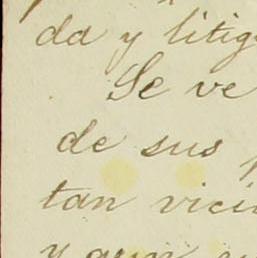 da y litig
Se ve
de sus
tan vici
y